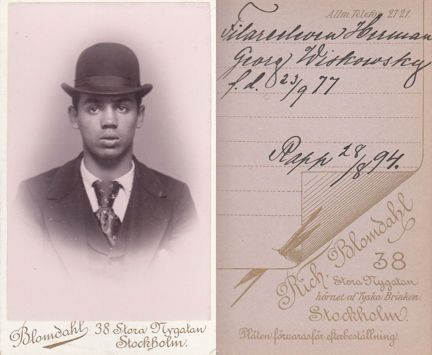 Blomdahl 38 Stora Nygatan
Stockholm.
Allm. Telefon 27 21.
Filarechven Herman
Georg Wiskowsky
f. d. 23/9 77
Rapp 28/8 94.
Rich. Blomdahl
38
Stora Nygatan
hörnet af Tyska Brinken.
Stockholm.
Plåten förvaras för efterbeställning.